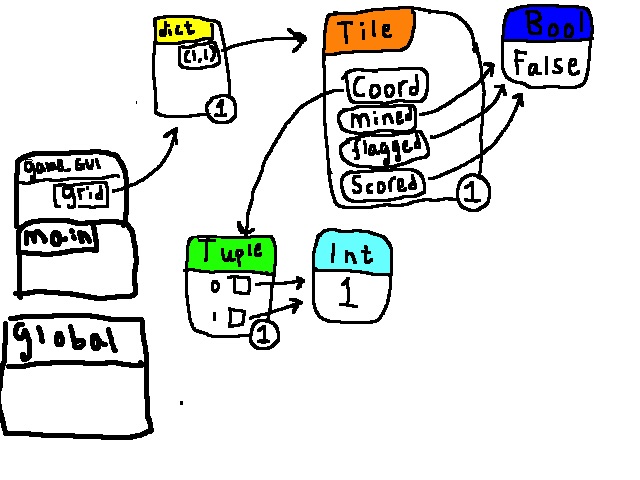 dict
(1,1)
1
Tile
Coord
mined
flagged
Scored
1
Bool
False
game_GUI
grid
main
global
Tuple
0
1
1
Int
1